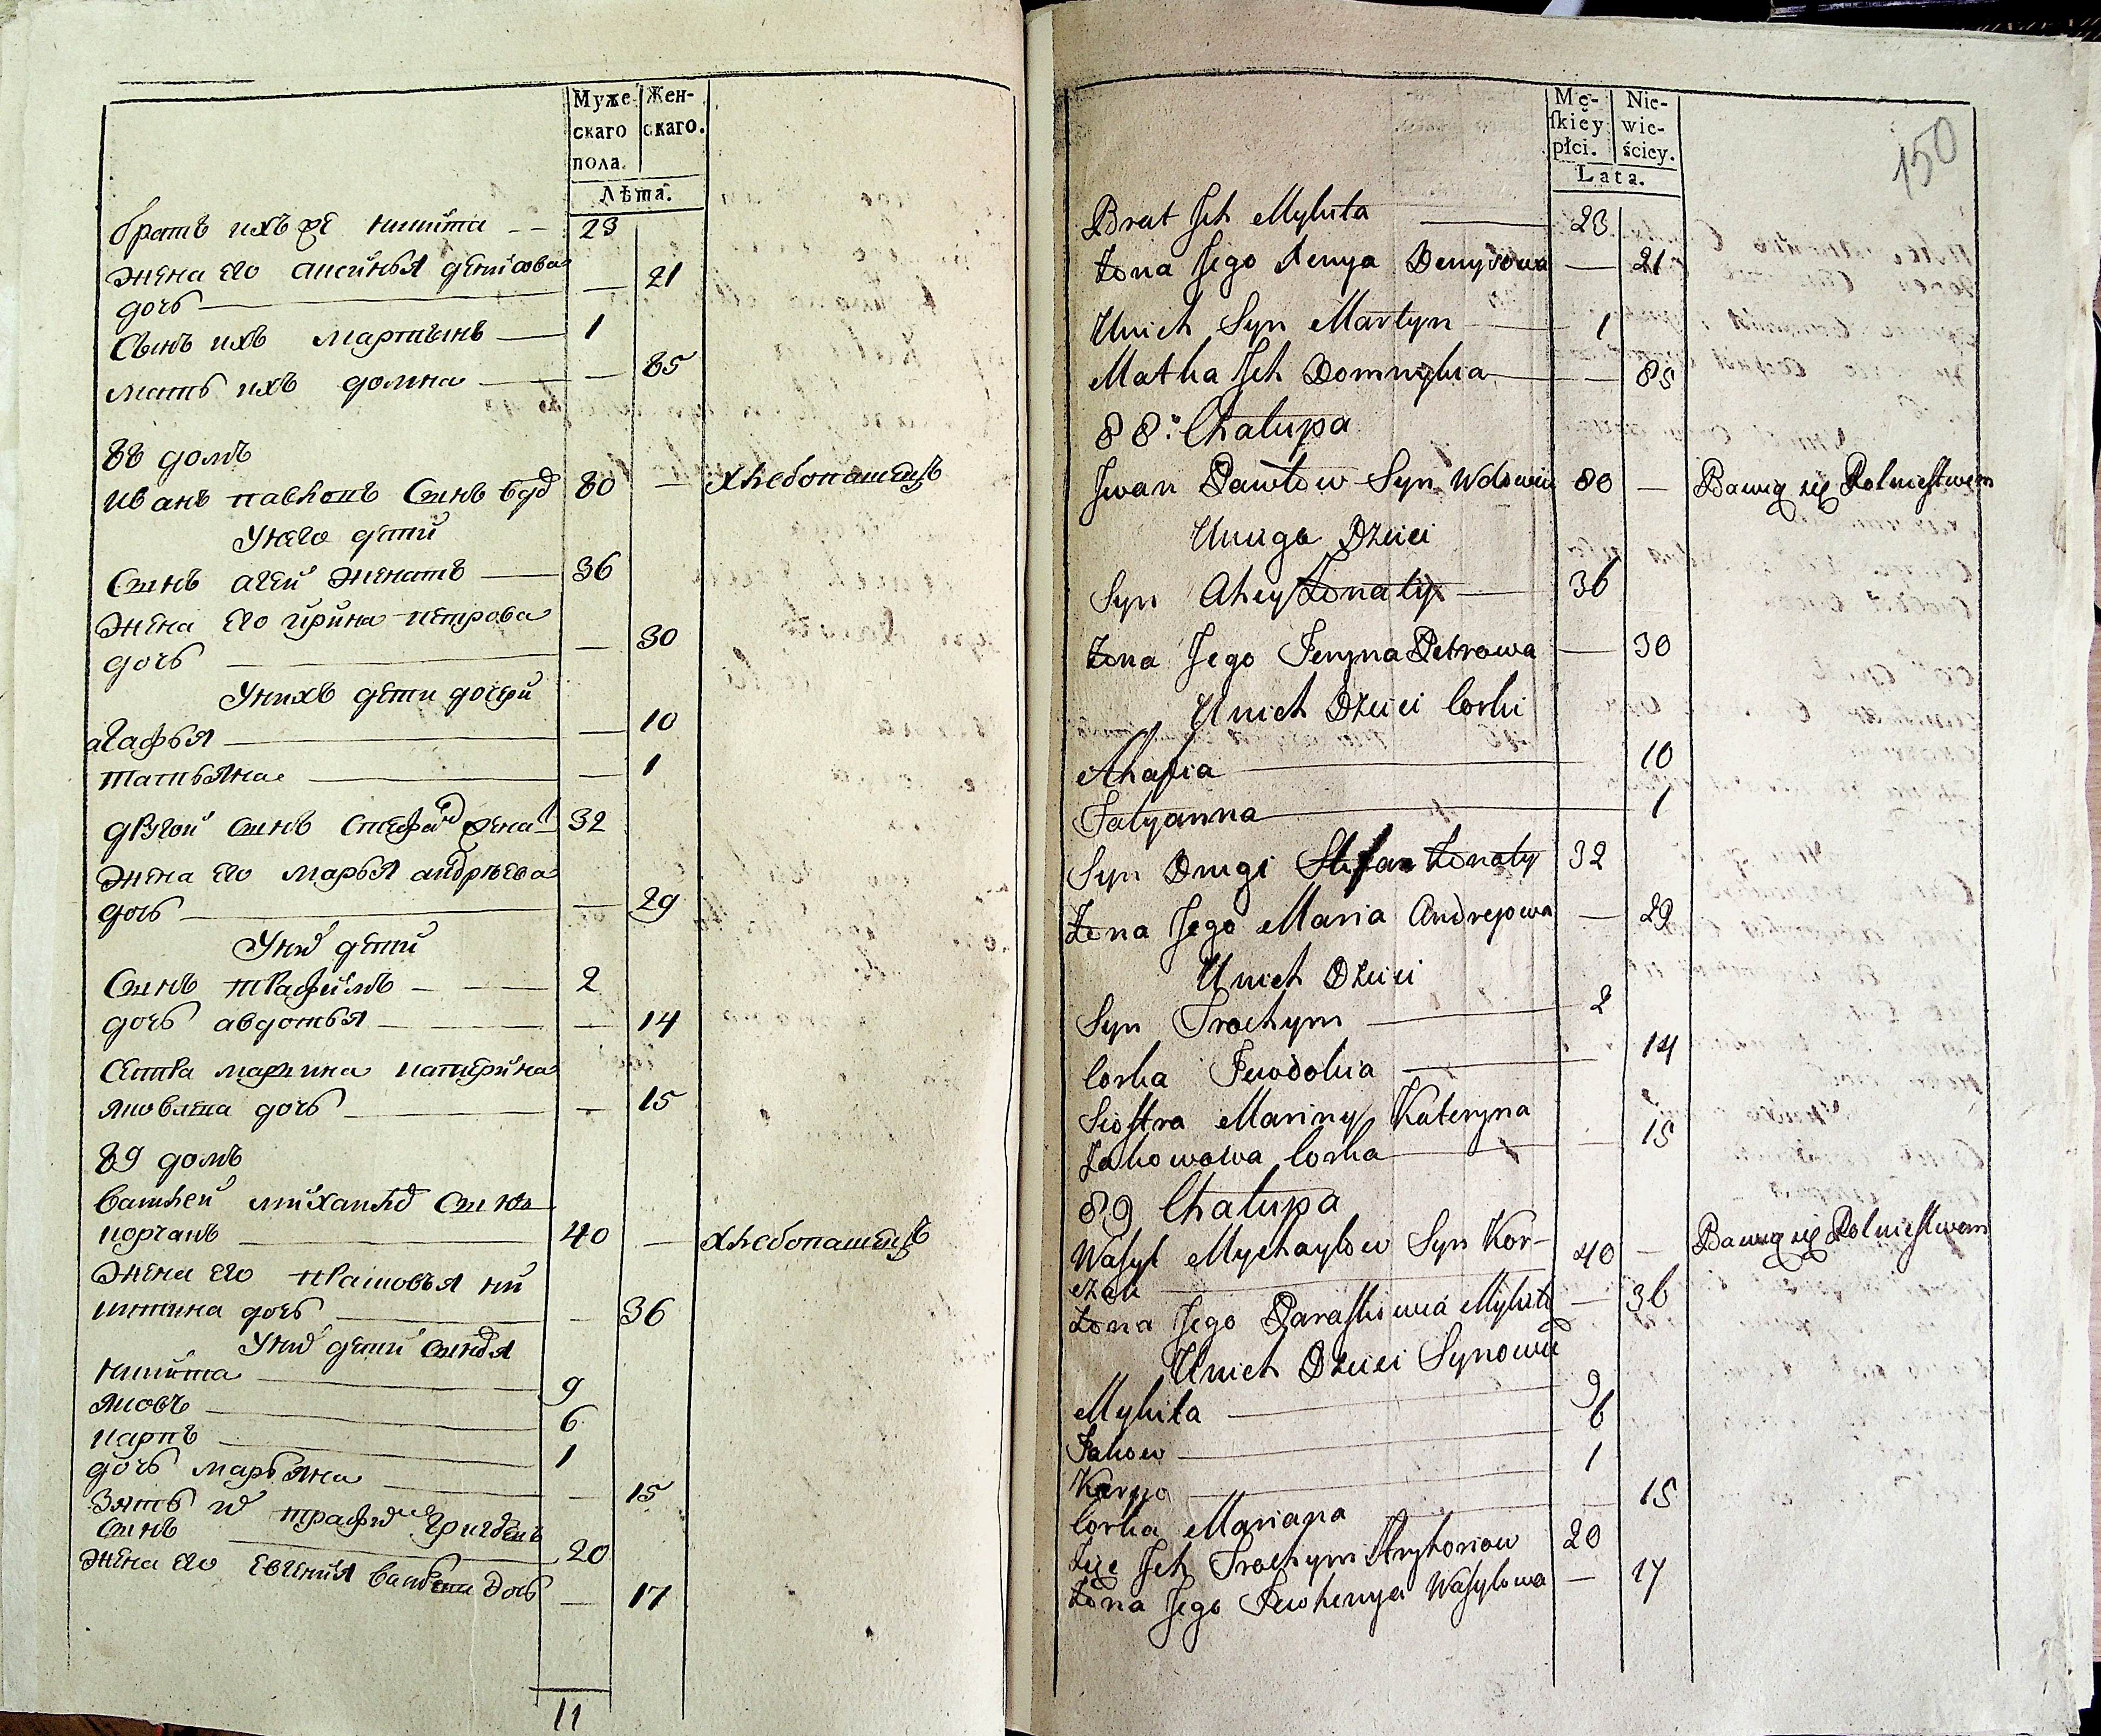 Муже-
скаго
пола.
Жен-
скаго.
Лѣта.
братъ ихъ же никита 23
жена его аксинья денисова
дочь — 21
Сынъ ихъ мартынъ 1
мать ихъ домна — 85
88 домъ
Иванъ павловъ Сынъ вдо 80 — хлебопашецъ
Унего дети
Сынъ агей женатъ 36
жена его ирина петрова
дочь — 30
Унихъ дети дочери
агафья — 10
татьяна — 1
другой сынъ стефанъ женат 32
жена его марья андрѣева
дочь — 29
Уних дети
Сынъ трафимъ 2
дочь авдотья — 14
Сестра марины катерина
яковлева дочь — 15
89 домъ
василей михайлов Сынъ
корчакъ 40 — хлебопашецъ
жена его прасковья ни
китина дочь — 36
Уних дети сыновья
никита 9
яковъ 6
карпъ 1
дочь марьяна — 15
Зять их трафим григорьевъ
Сынъ 20
жена его евгения васильева дочь — 17
11
Mę-
skiey
płci.
Nie-
wie-
ściey.
Lata.
150
Brat Ich Mykita 23
Żona Jego Xenya Denysowa — 21
Unich Syn Martyn 1
Matka Ich Domnykia — 85
88. Chałupa
Iwan Pawłow Syn Wdowiec 80 — Bawią się Rolnictwem
Uniego Dzieci
Syn Ahey Żonaty 36
Żona Jego Jeryna Petrowa — 30
Unich Dzieci Corki
Ahafia 10
Tatyanna 1
Syn Drugi Stefan Żonaty 32
Żona Jego Maria Andrejowa — 29
Unich Dzieci
Syn Trochym 2
Corka Jewdokia 14
Siostra Mariny Kateryna
Jakowowa Corka — 15
89 Chałupa
Wasyl Mychayłow Syn Kor-
czak 40 — Bawią się Rolnictwem
Żona Jego Paraskiewia Mykit — 36
Unich Dzieci Synowie
Mykita 9
Jakow 6
Karpo 1
Corka Mariana — 15
Zięć Ich Trochym Hryhoriow 20
Żona Jego Jewhenya Wasylowa — 17